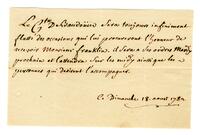 Le Cte D [?] sera toujours infiniment
flatté des occasions qui lui procureront l'honneur de
recevoir Monsieur franklin. il sera a ses ordres mardy
prochain et l'attendra sur les midy ainsi que les
personnes qui doivent l'accompagner.
Ce Dimanche 18. aout 1782